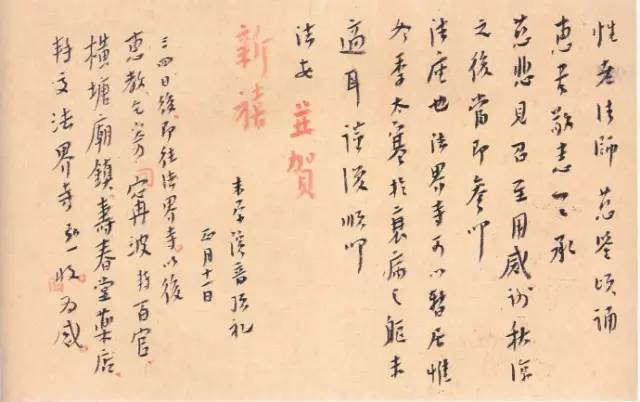 性老法师慈鉴顷诵
惠书敬悉一一承
慈悲见召至用感谢秋凉
之后当即参叩
法座也法界寺可以暂居惟
冬季太寒于衰病之躯未
适耳谨复顺叩
法安 并贺
新禧
末学演音顶礼
正月十一日
三四日后即往法界寺以后
惠教乞寄宁波转百官
横塘庙镇寿春堂药店
转交法界寺弘一收为感